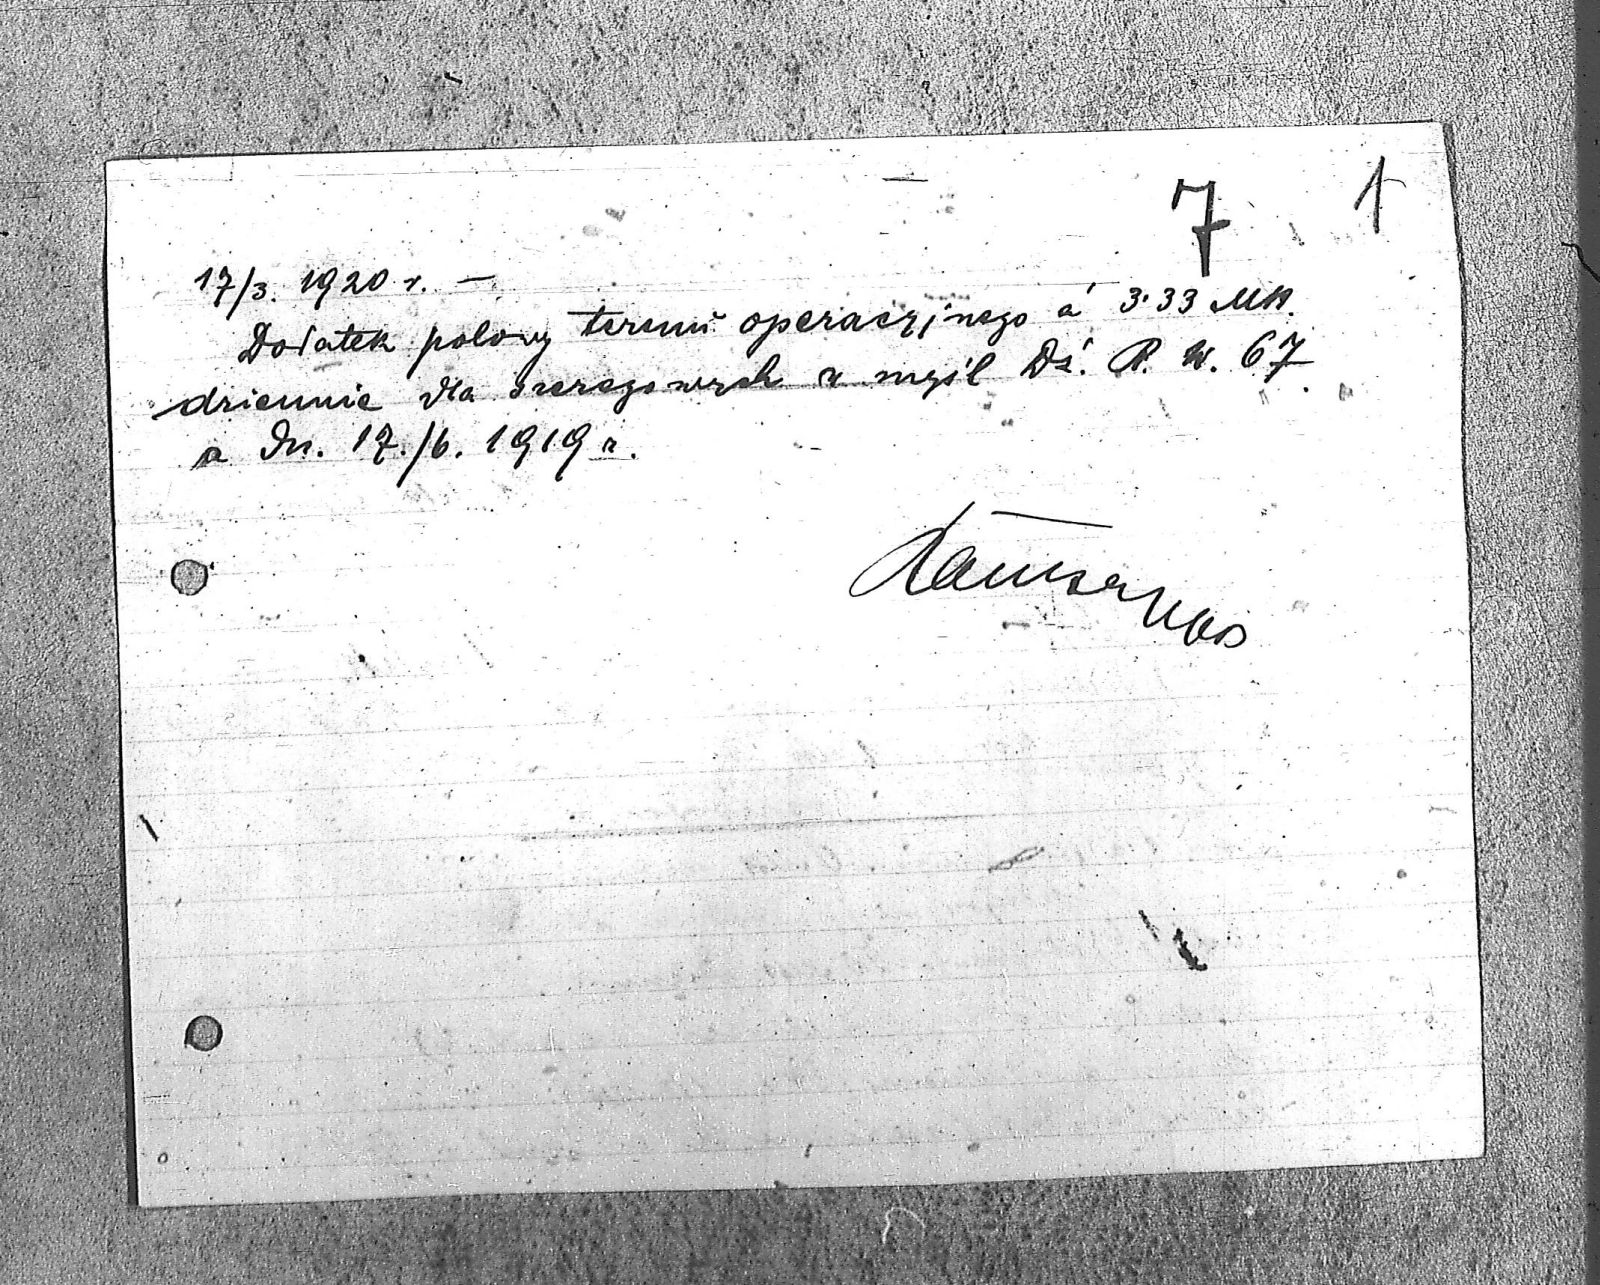 7 1
17/3. 1920 r. —
Dodatek polowy terenu operacyjnego á 3·33 Mk.
dziennie dla szeregowych w myśl Dź. R. W. 67
z dn. 17./6. 1919 r.